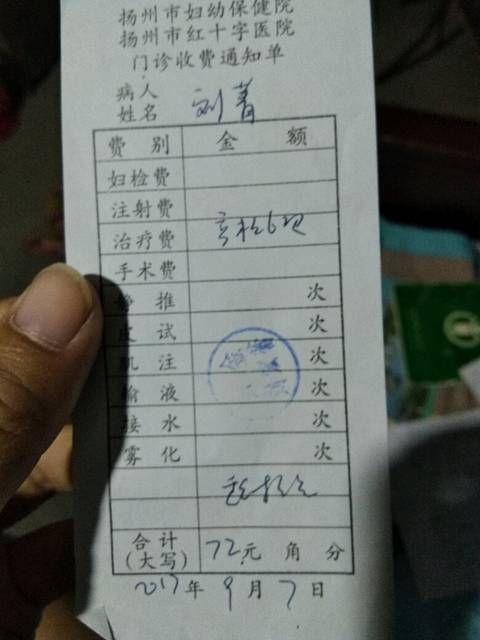 扬州市妇幼保健院
扬州市红十字医院
门诊收费通知单
病人
姓名 刘菁
费 别 金 额
妇检费
注射费
治疗费
手术费
静 推 次
皮 试 次
肌 注 次
输 液 次
接 水 次
雾 化 次
合计
(大写) 72元 角 分
2017年 9月 7日